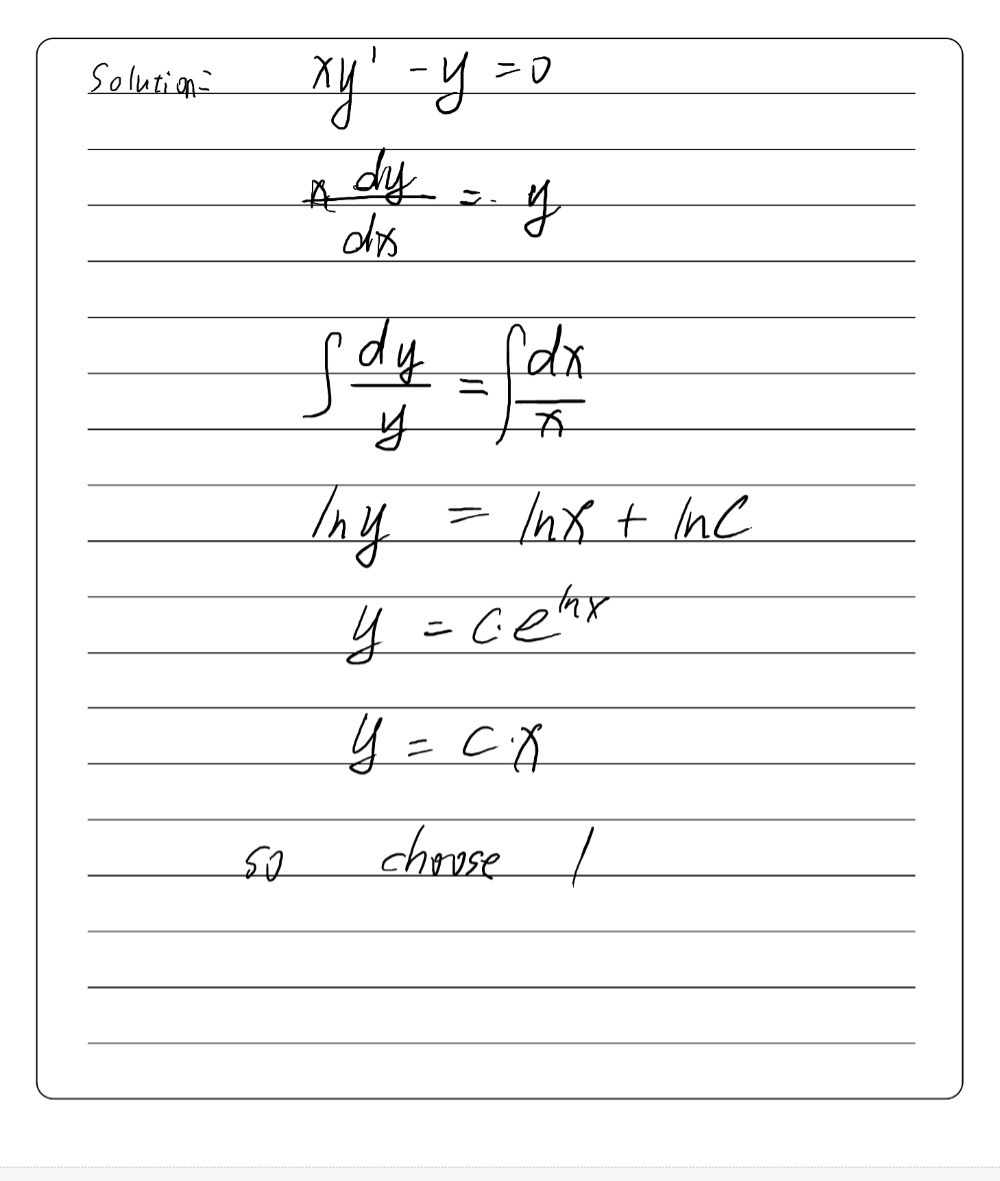 Solution: xy' - y = 0
x dy/dx = y
∫ dy/y = ∫ dx/x
ln y = ln x + ln C
y = C·e^{ln x}
y = C·x
so choose 1